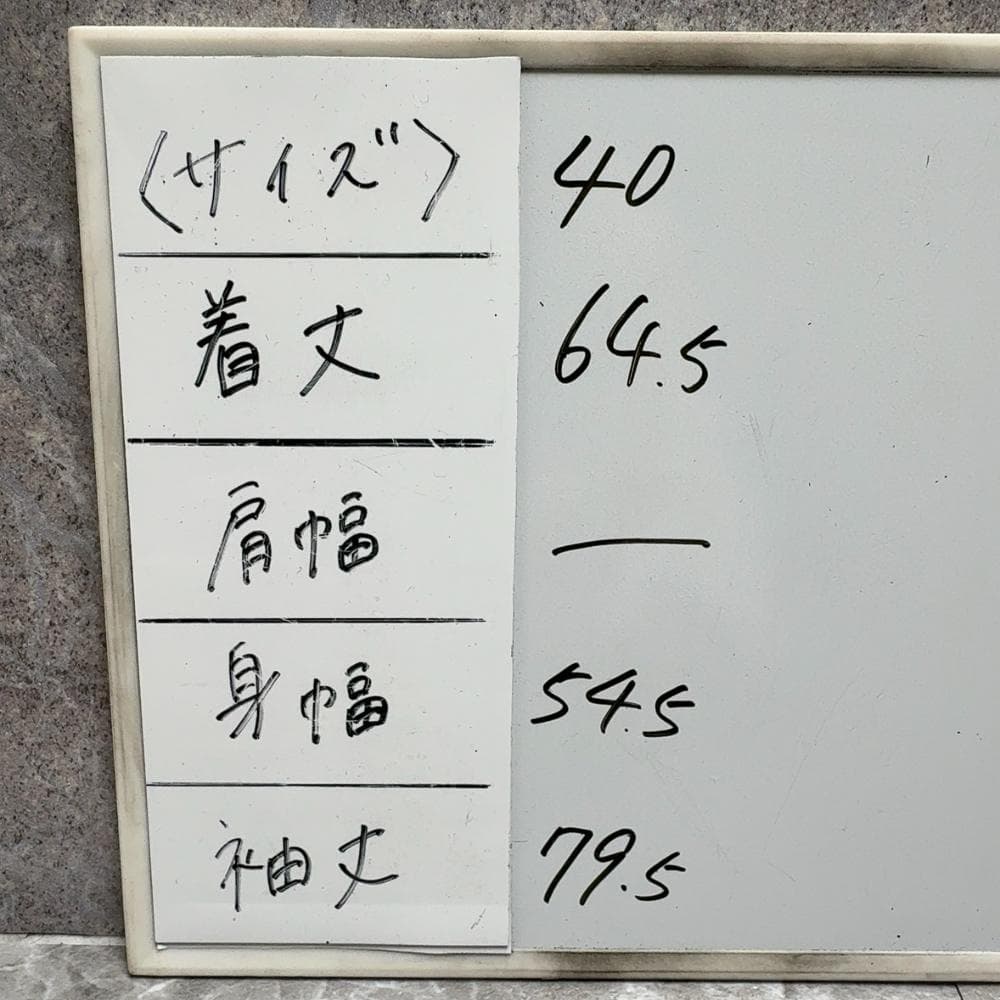 〈サイズ〉 40
着丈 64.5
肩幅 —
身幅 54.5
袖丈 79.5